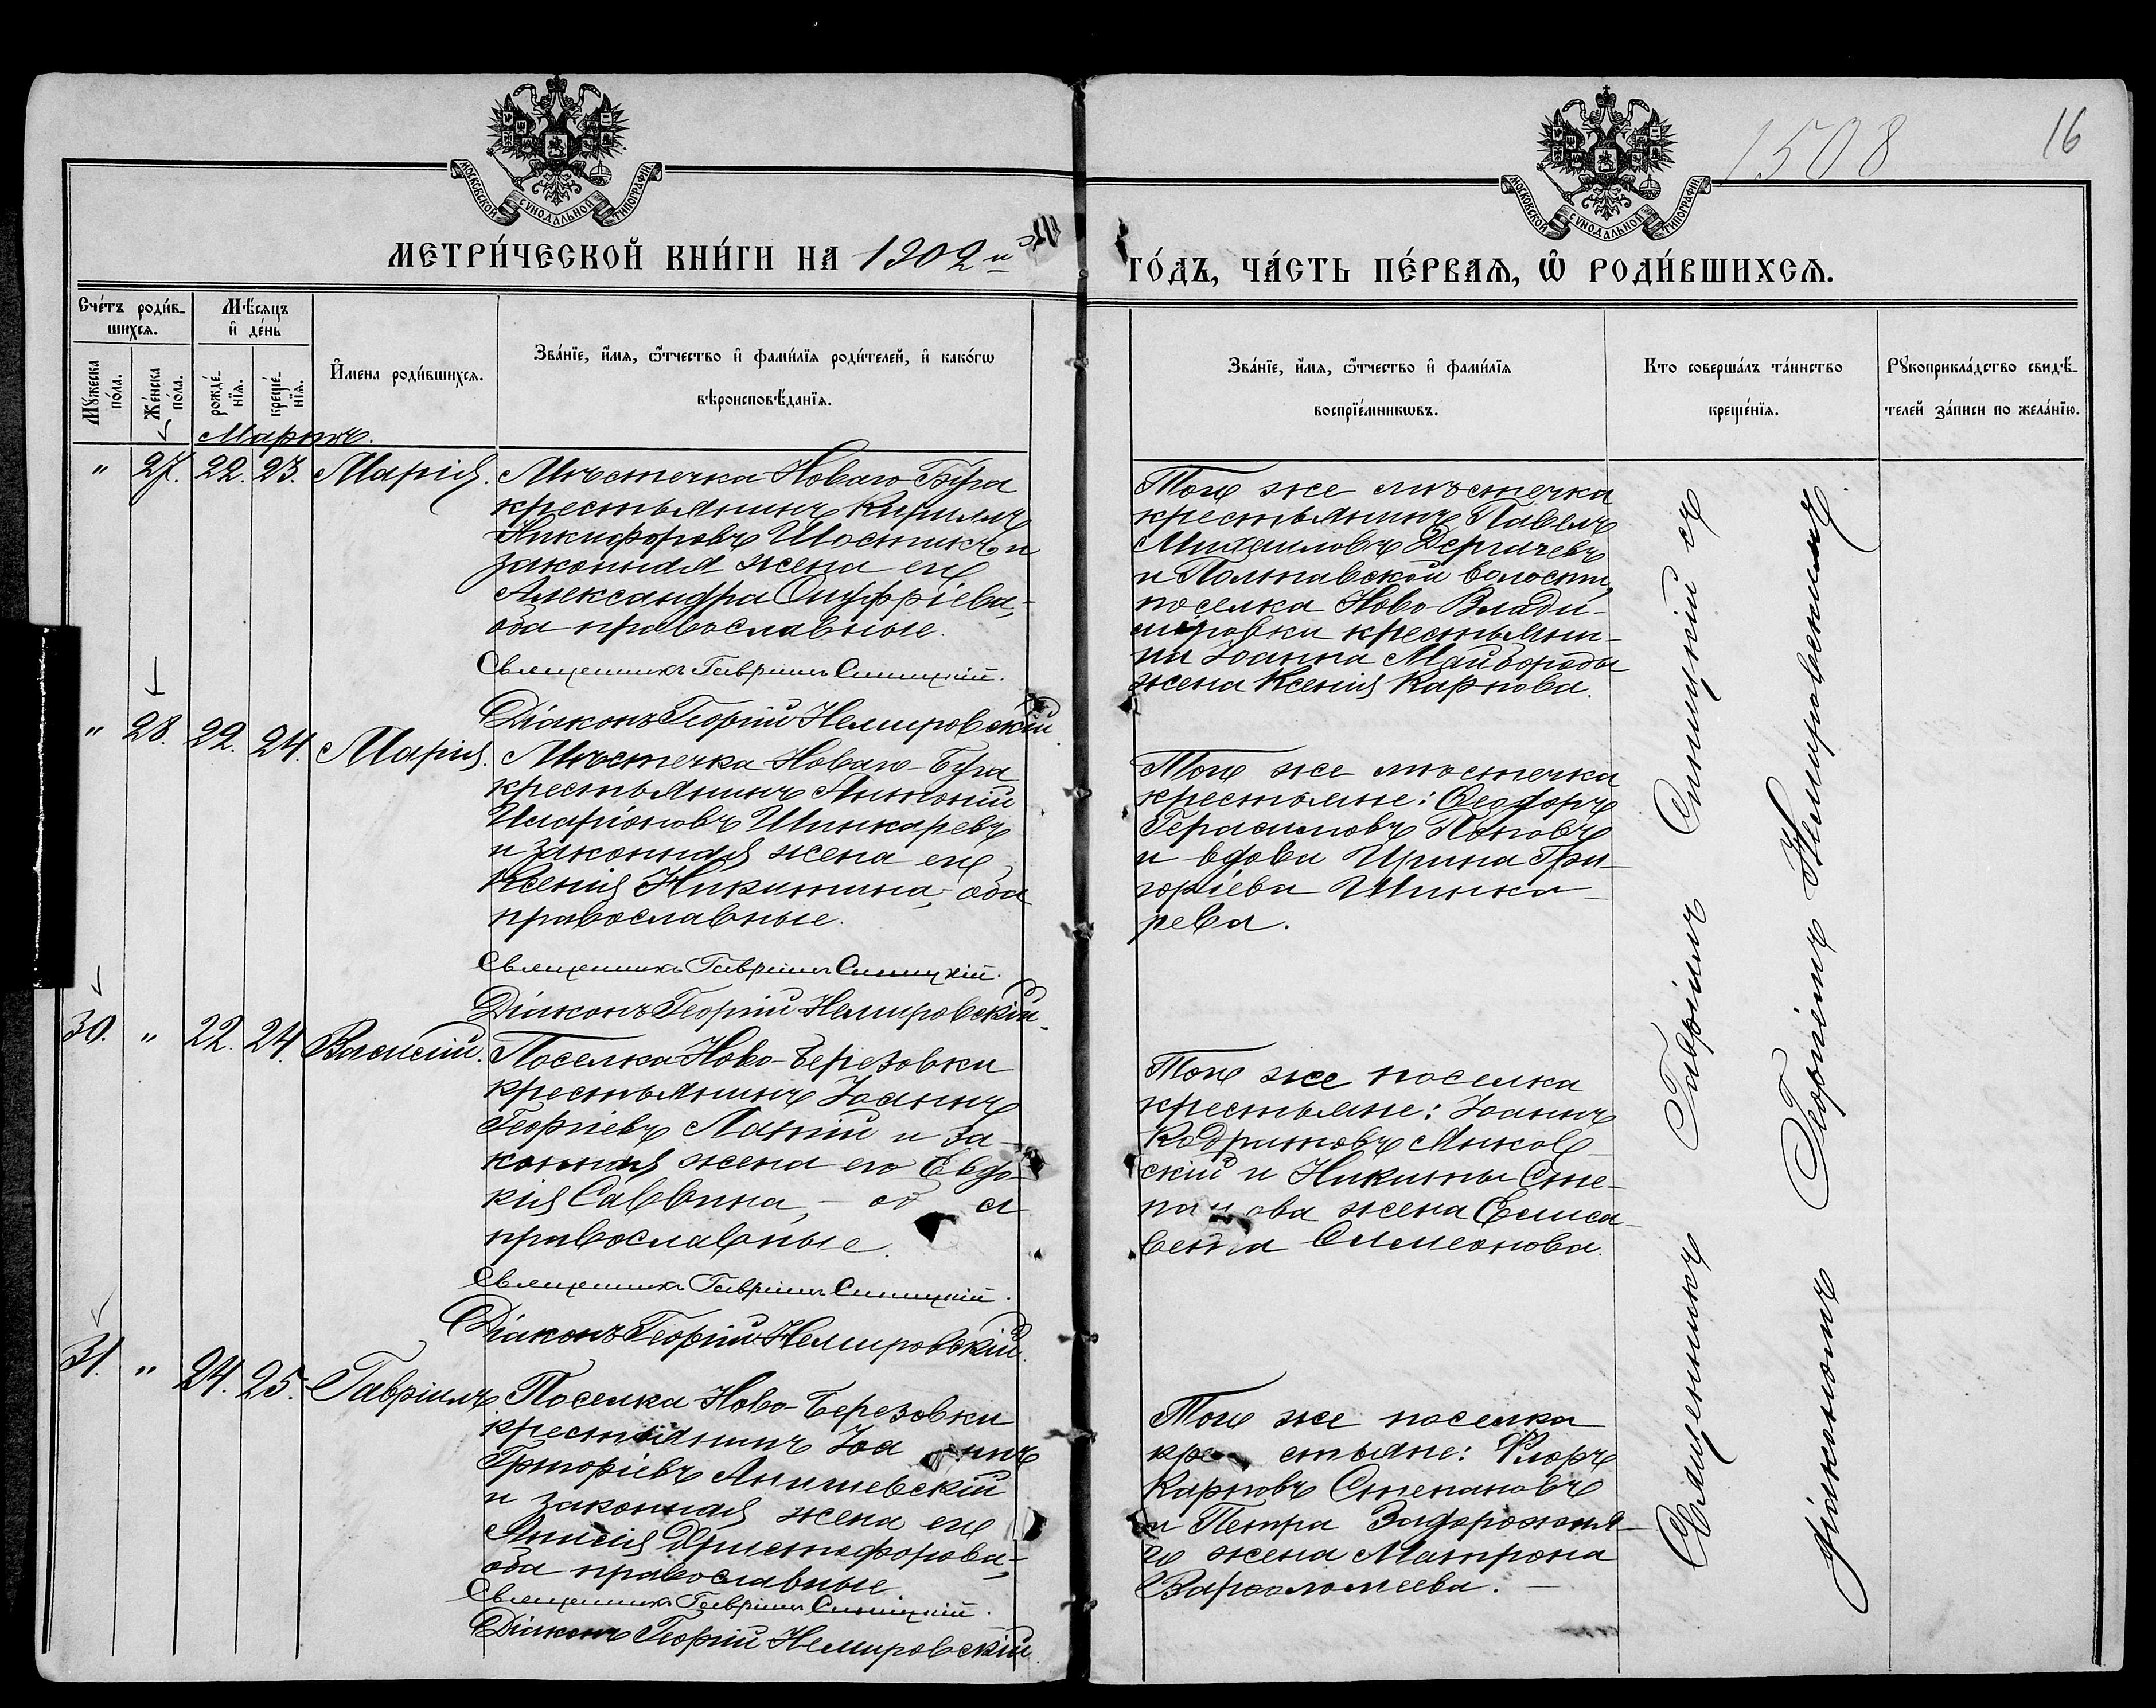 МОСКОВСКОЙ СѴНОДАЛЬНОЙ ТИПОГРАФІИ
МОСКОВСКОЙ СѴНОДАЛЬНОЙ ТИПОГРАФІИ
1508
16
МЕТРИ́ЧЕСКОЙ КНИ́ГИ НА 1902 й
ГО́ДЪ, ЧА́СТЬ ПЕ́РВАЯ, Ѿ РОДИ́ВШИХСЯ.
Сче́тъ роди́в-
шихся.
Му́жеска по́ла.
Же́нска по́ла.
Мѣ́сяцъ
и҆ де́нь
рожде́-
нїя.
креще́-
нїя.
И҆мена роди́вшихся.
Зва́нїе, и҆́мя, ѻ҆́тчество и҆ фами́лїя роди́телей, и҆ како́гѡ
вѣроисповѣ́данїя.
Зва́нїе, и҆́мя, ѻ҆́тчество и҆ фами́лїя
воспрїе́мникѡвъ.
Кто соверша́лъ та́инство
креще́нїя.
Рꙋкоприкла́дство свидѣ́-
телей за́писи по жела́нїю.
Мартъ.
" 27. 22. 23. Марія.
Мѣстечка Новаго-Буга
крестьянинъ Кириллъ
Никифоровъ Шостикъ и
законная жена его
Александра Онуфріева,-
оба православные.
Священникъ Гавріилъ Синицкій.
Діаконъ Георгій Немировскій
Того же мѣстечка
крестьянинъ Павелъ
Михаиловъ Дергачевъ
и Полтавской волости,
поселка Ново-Влади-
мировки крестьяни-
на Іоанна Майбороды
жена Ксенія Карпова.
" 28. 22. 24. Марія.
Мѣстечка Новаго-Буга
крестьянинъ Антоній
Иларіоновъ Шинкаревъ
и законная жена его
Ксенія Никитина,- оба
православные.
Священникъ Гавріилъ Синицкій.
Діаконъ Георгій Немировскій
Того же мѣстечка
крестьяне: Ѳеодоръ
Герасимовъ Поповъ
и вдова Ирина Гри-
горіева Шинка-
рева.
30. " 22. 24. Василій.
Поселка Ново-Березовки
крестьянинъ Іоаннъ
Георгіевъ Лапій и за-
конная жена его Евдо-
кія Саввина,- оба
православные.
Священникъ Гавріилъ Синицкій.
Діаконъ Георгій Немировскій.
Того же поселка
крестьяне: Іоаннъ
Кодратовъ Янков-
скій и Никиты Сте-
панова жена Елиса-
вета Симеонова.
31. " 24. 25. Гавріилъ
Поселка Ново-Березовки
крестьянинъ Іоаннъ
Григоріевъ Анишевскій
и законная жена его
Анисія Христофорова,-
оба православные
Священникъ Гавріилъ Синицкій.
Діаконъ Георгій Немировскій.
Того же поселка
крестьяне: Флоръ
Карповъ Степановъ
и Петра Задорожня-
го жена Матрона
Варѳоломеева.
Священникъ Гавріилъ Синицкій съ
діакономъ Георгіемъ Немировскимъ.